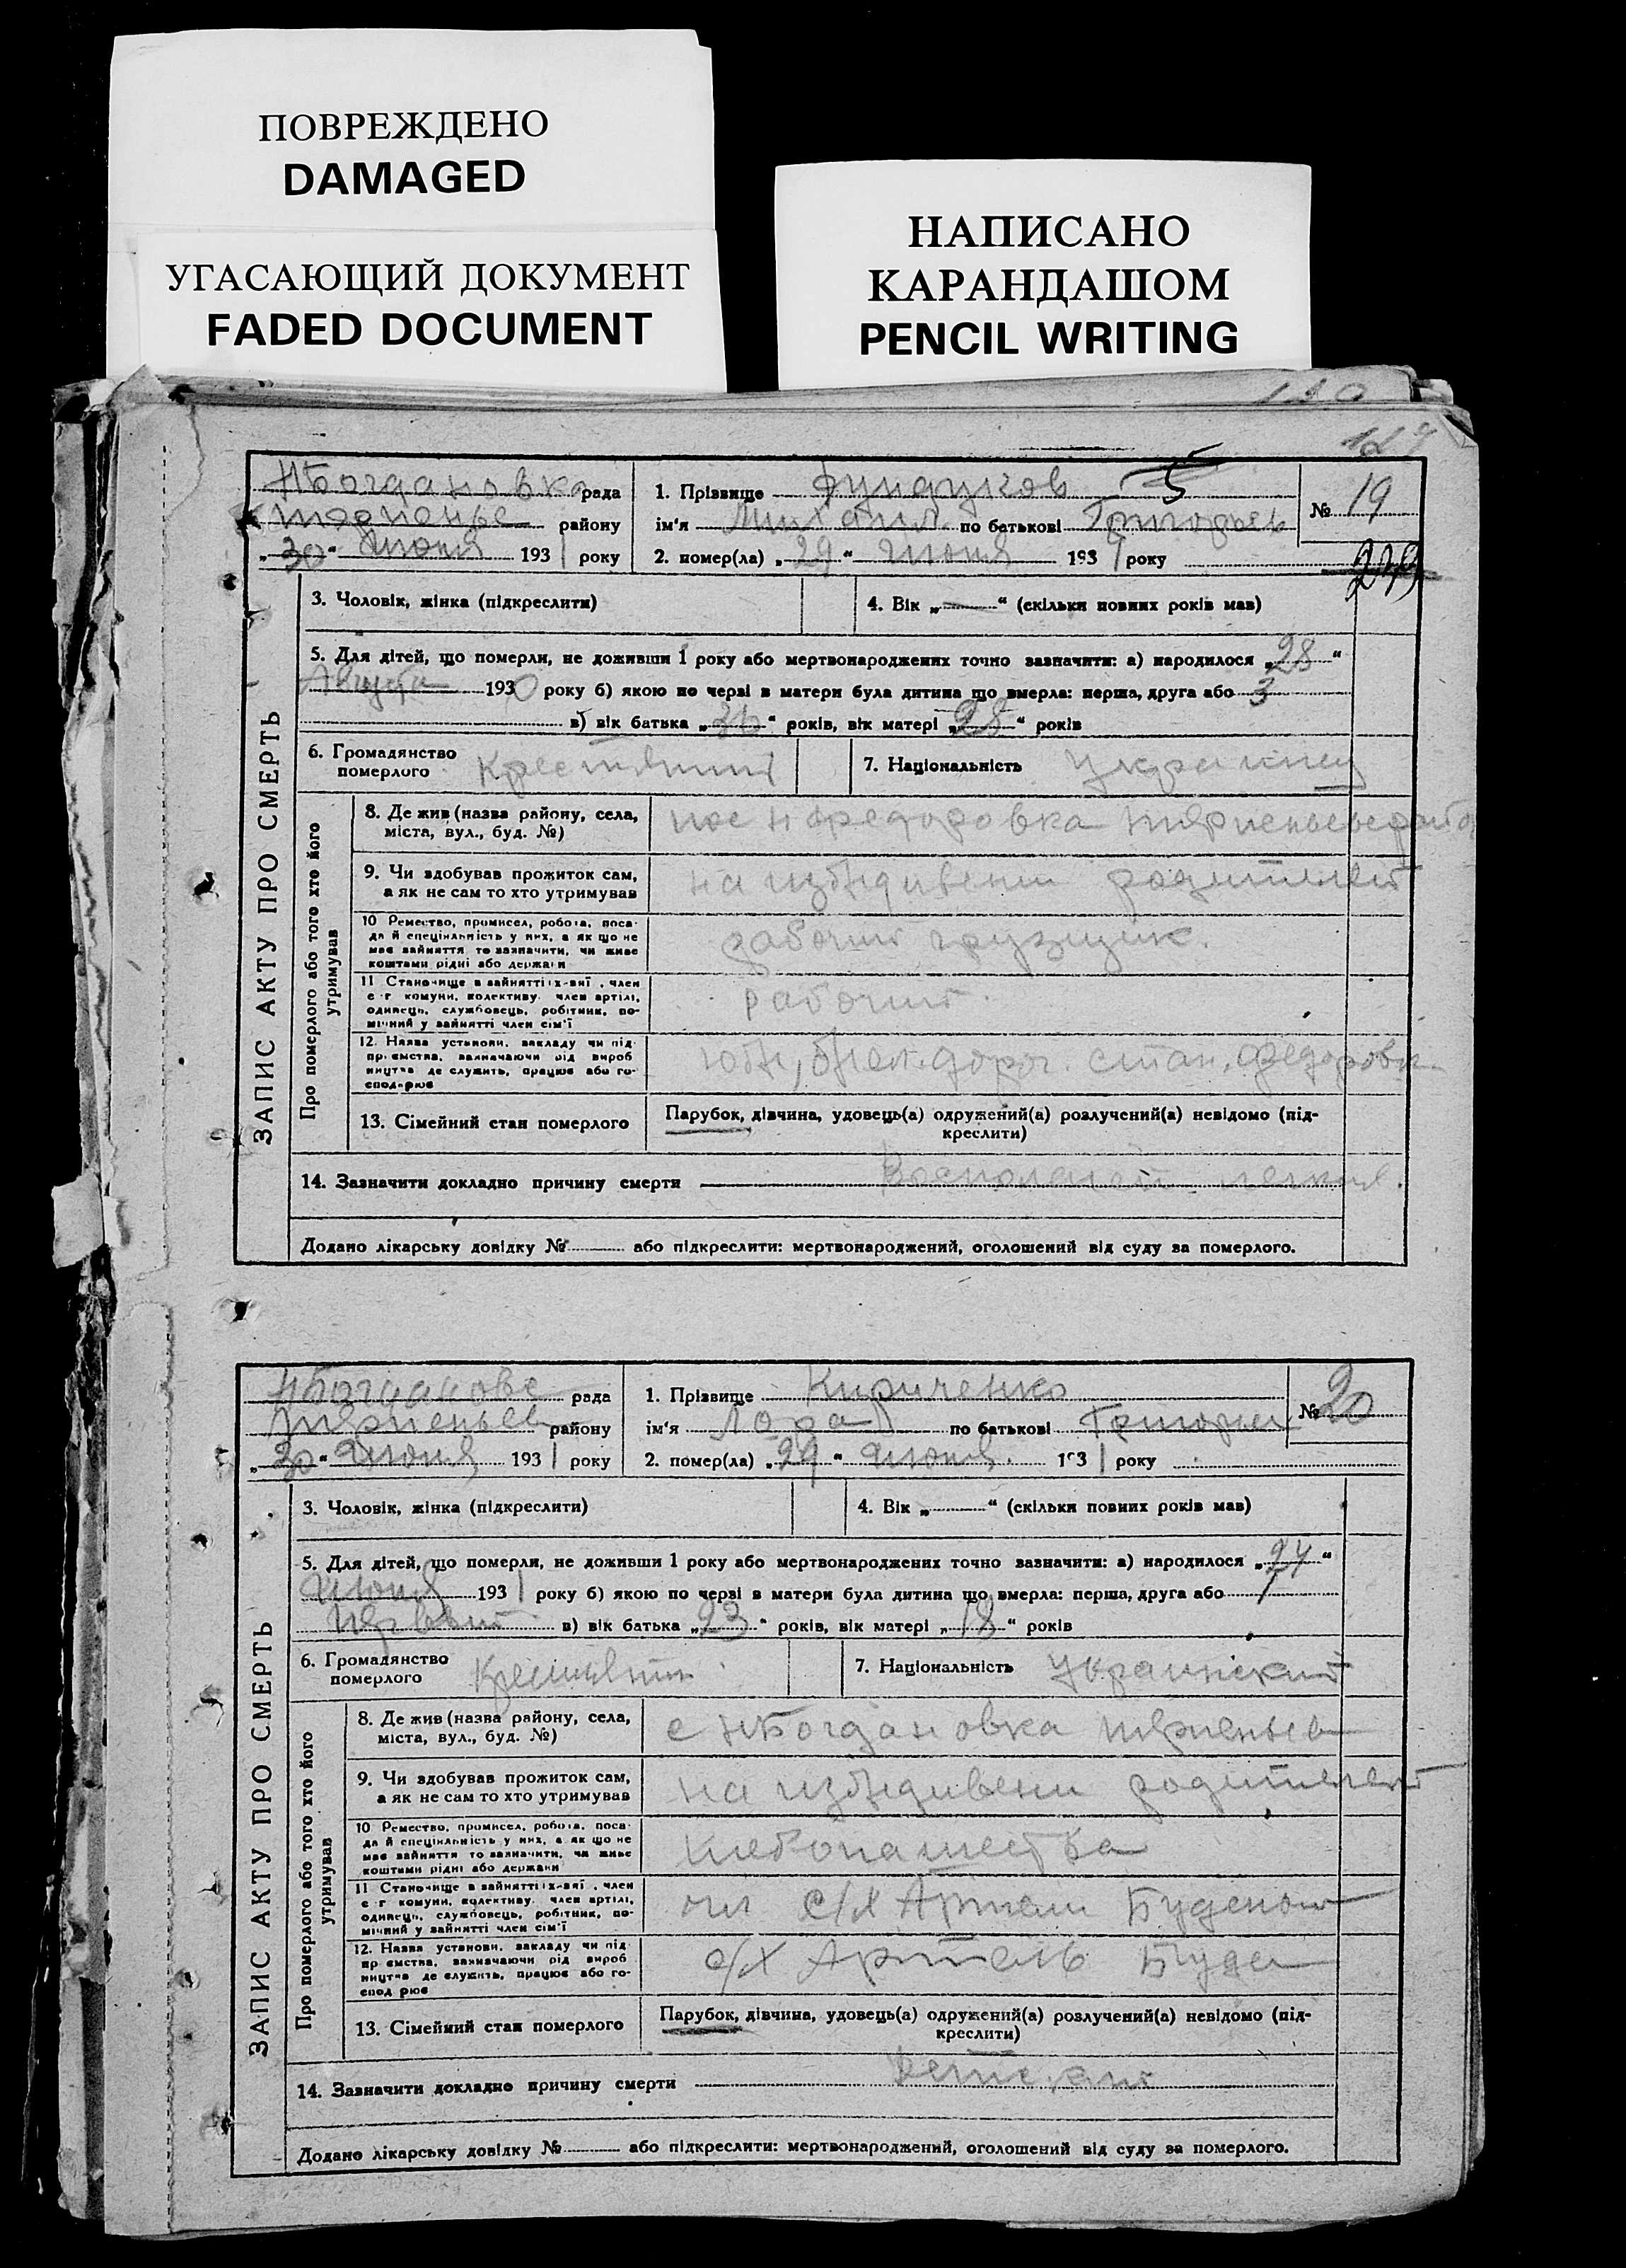 ПОВРЕЖДЕНО
DAMAGED
УГАСАЮЩИЙ ДОКУМЕНТ
FADED DOCUMENT
НАПИСАНО
КАРАНДАШОМ
PENCIL WRITING
НБогдановка рада
району
„30“ Июня 1931 року
1. Прізвище Фундуков 5
ім'я Михаил по батькові Григорьев
2. помер(ла) „29“ Июня 1931 року
№ 19
3. Чоловік, жінка (підкреслити)
4. Вік „—“ (скільки повних років мав)
5. Для дітей, що померли, не доживши 1 року або мертвонароджених точно зазначити: а) народилося „28“
Августа 1930 року б) якою по черзі в матери була дитина що вмерла: перша, друга або 3
в) вік батька „“ років, вік матері „28“ років
6. Громадянство
померлого Крестянин
7. Національність Украинец
ЗАПИС АКТУ ПРО СМЕРТЬ
Про померлого або того хто його
утримував
8. Де жив (назва району, села,
міста, вул., буд. №)
9. Чи здобував прожиток сам,
а як не сам то хто утримував
на иждивении родителей
10 Ремество, промисел, робота, поса-
да й спеціяльність у них, а як що не
має зайняття то зазначити, чи живе
коштами рідні або держави
рабочий грузщик.
11 Становище в зайнятті їх-анї, член
с-г комуни, колективу, член артілі,
одинець, службовець, робітник, по-
мічний у зайнятті член сім'ї
рабочий.
12. Назва установи, закладу чи під-
приємства, зазначаючи рід вироб
ництва де служить, працює або го-
сподарює
13. Сімейний стан померлого
Парубок, дівчина, удовець(а) одружений(а) розлучений(а) невідомо (під-
креслити)
14. Зазначити докладно причину смерти Воспаление легких.
Додано лікарську довідку № або підкреслити: мертвонароджений, оголошений від суду за померлого.
НБогданове рада
Терпеньев району
„30“ Июня 1931 року
1. Прізвище Кириченко
ім'я Лора по батькові Григорьев
2. помер(ла) „29“ Июня. 1931 року
№ 20
3. Чоловік, жінка (підкреслити)
4. Вік „“ (скільки повних років мав)
5. Для дітей, що померли, не доживши 1 року або мертвонароджених точно зазначити: а) народилося „24“
Июня 1931 року б) якою по черзі в матери була дитина що вмерла: перша, друга або 1
первый в) вік батька „23“ років, вік матері „18“ років
6. Громадянство
померлого Крестьянин
7. Національність Украинский
ЗАПИС АКТУ ПРО СМЕРТЬ
Про померлого або того хто його
утримував
8. Де жив (назва району, села,
міста, вул., буд. №)
с НБогдановка терпеньев
9. Чи здобував прожиток сам,
а як не сам то хто утримував
на иждивени родителей
10 Ремество, промисел, робота, поса-
да й спеціяльність у них, а як що не
має зайняття то зазначити, чи живе
коштами рідні або держави
11 Становище в зайнятті їх-анї, член
с-г комуни, колективу, член артілі,
одинець, службовець, робітник, по-
мічний у зайнятті член сім'ї
чл с/х Артели Буденом
12. Назва установи, закладу чи під-
приємства, зазначаючи рід вироб
ництва де служить, працює або го-
сподарює
с/х Артель Буден
13. Сімейний стан померлого
Парубок, дівчина, удовець(а) одружений(а) розлучений(а) невідомо (під-
креслити)
14. Зазначити докладно причину смерти
Додано лікарську довідку № або підкреслити: мертвонароджений, оголошений від суду за померлого.